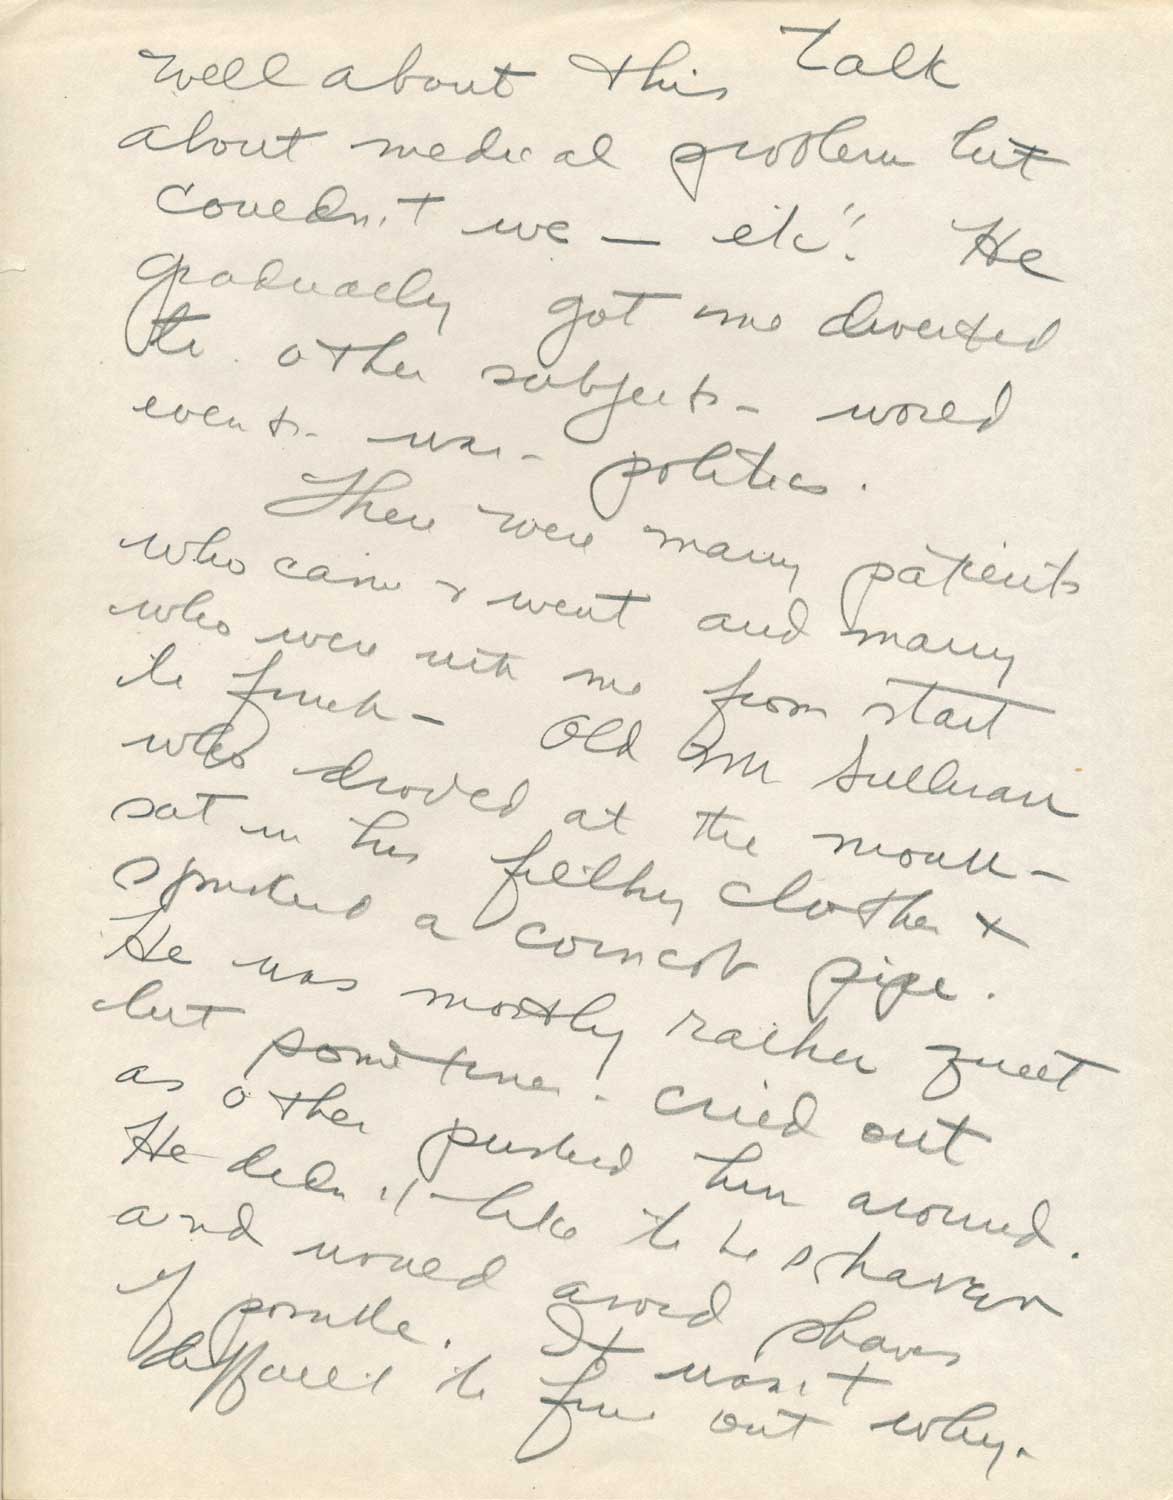 well about this talk
about medical problem but
couldn't we — etc". He
gradually got me diverted
to other subjects - world
events - war - politics.
There were many patients
who came & went and many
who were with me from start
to finish - Old Mr Sullivan
who drooled at the mouth -
sat in his filthy clothes &
smoked a corncob pipe.
He was mostly rather quiet
but sometimes cried out
as other pushed him around.
He didn't like to be shaven
and would avoid shaves
if possible. It wasn't
difficult to find out why.